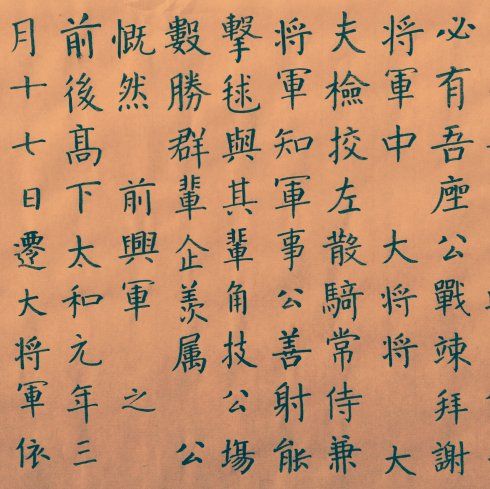 必有吾座公戰竦拜謝
将軍中 大将将 大
夫檢挍左散騎常侍兼
将軍知軍事公善射能
擊毬與其輩角技公塲
數勝群輩企羨属 公
慨然 前興軍 之
前後髙下太和元年三
月十七日遷大将軍依